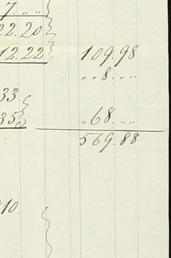 7. " "
22.20
12.22 109.98
" " 8 " "
33
35 " 68 " "
569.88
10.